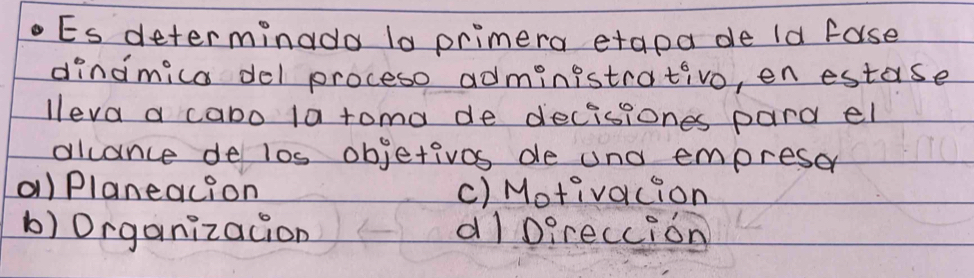 • Es determinada la primera etapa de la fase
dinámica del proceso administrativo, en esta se
lleva a cabo la toma de decisiones para el
alcance de los objetivos de una empresa
a) Planeacion c) Motivacion
b) Organizacion d) Dirección